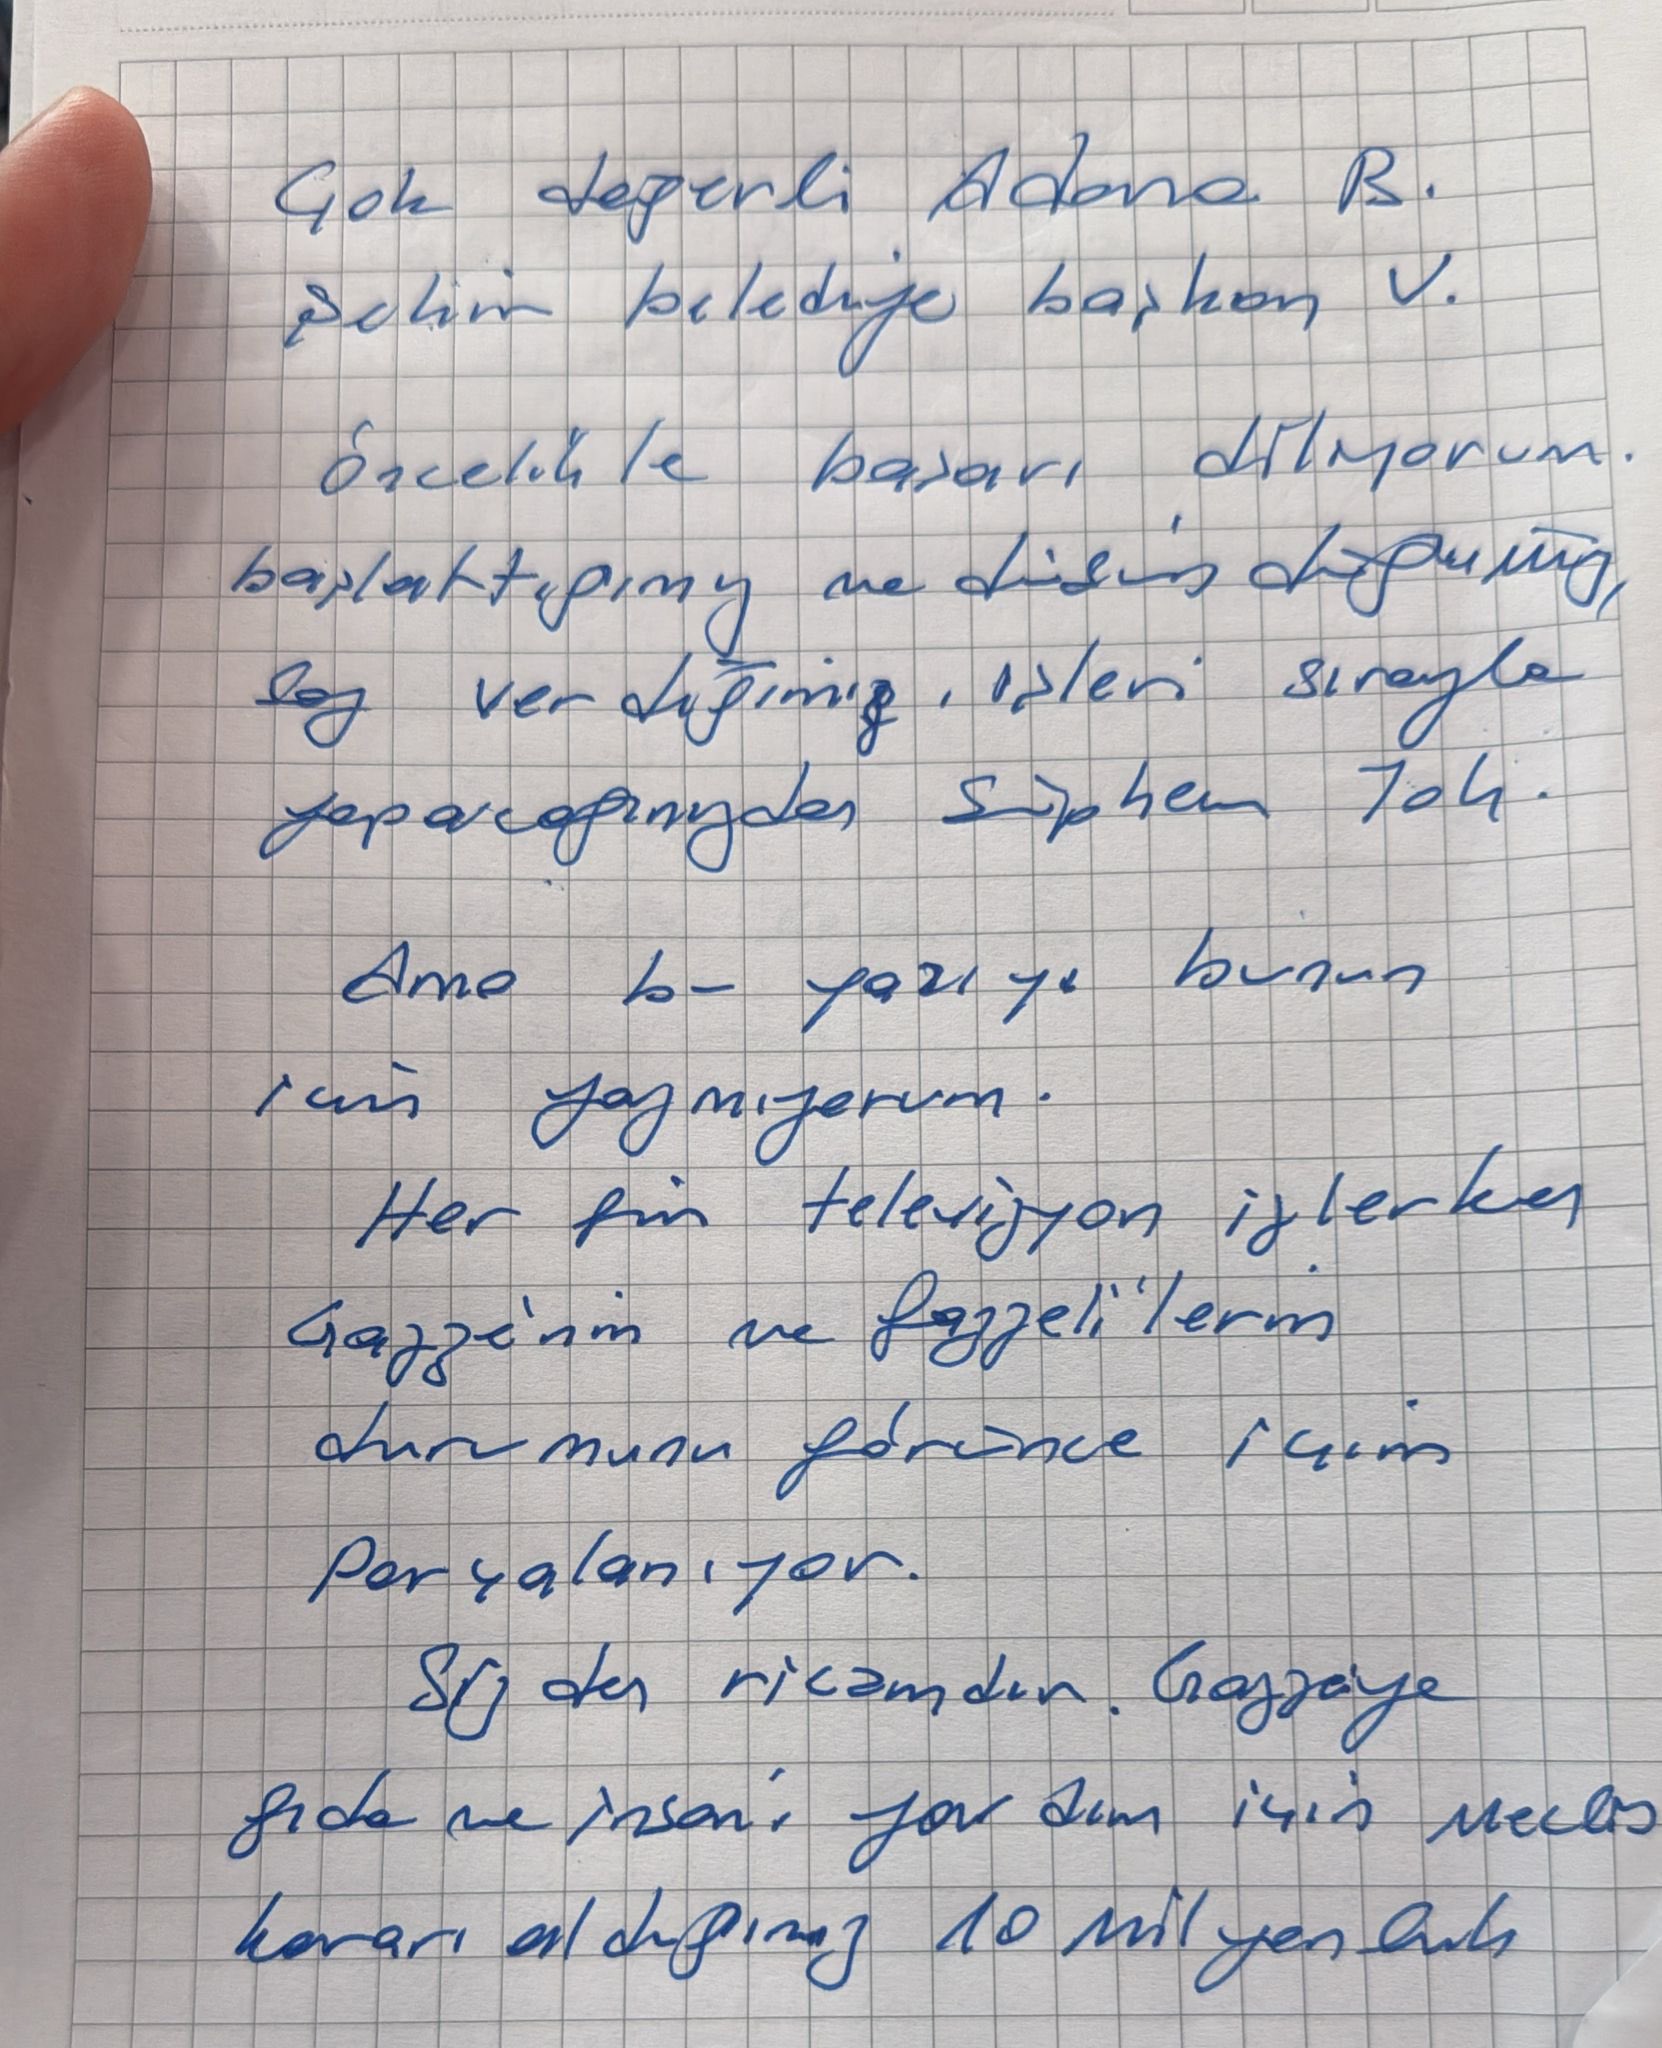 Çok değerli Adana B.
şehir belediye başkan V.
Öncelikle başarı diliyorum.
başlattığınız ve düşündüğünüz,
söz verdiğiniz, işleri sırayla
yapacağınızdan şüphem Yok.
Ama bu yazıyı bunun
için yazmıyorum.
Her gün televizyon izlerken
Gazze'nin ve gazzeli'lerin
durumunu görünce içim
Parçalanıyor.
Sizden ricamdır. Gazzeye
gıda ve insani yardım için Meclis
kararı aldığınız 10 Milyonluk